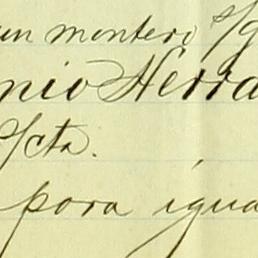 un montero s/g
nio Herra
s/cta.
para igua